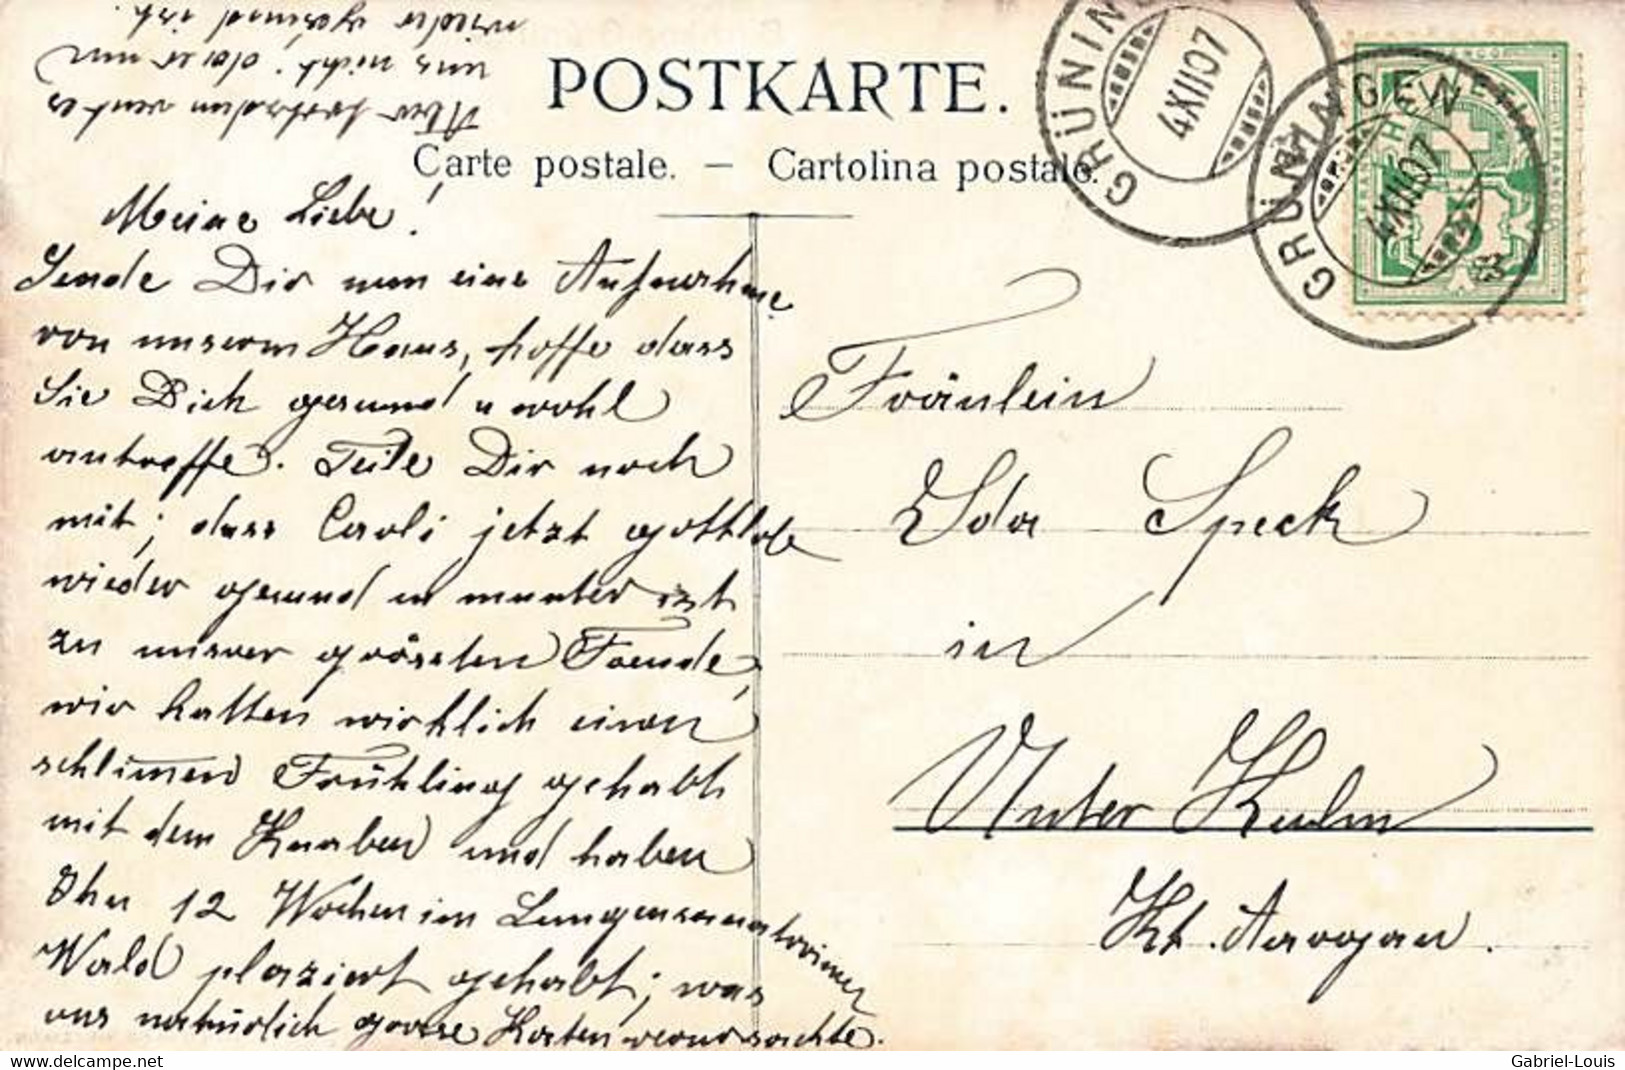 POSTKARTE.
Carte postale. — Cartolina postale.
GRÜNINGEN
4XII07
GRÜNINGEN
4XII07
FRANCO
HELVETIA
5
Meine Liebe!
Sende Dir nun eine Aufnahme
von unserm Haus, hoffe dass
Sie Dich gesund u wohl
antreffe. Teile Dir noch
mit; dass Carli jetzt gottlob
wieder gesund u munter ist
zu unsrer grössten Freude,
wir hatten wirklich einen
schlimmen Frühling gehabt
mit dem Knaben und haben
Ihn 12 Wochen im Lungensanatorium
Wald plaziert gehabt; was
uns natürlich grosse Kosten verursachte.
Aber trotzdem reut es
uns nicht, da er nun
wieder gesund ist.
Fräulein
Ida Speck
in
Unter Kulm
Kt. Aargau.
Gabriel-Louis